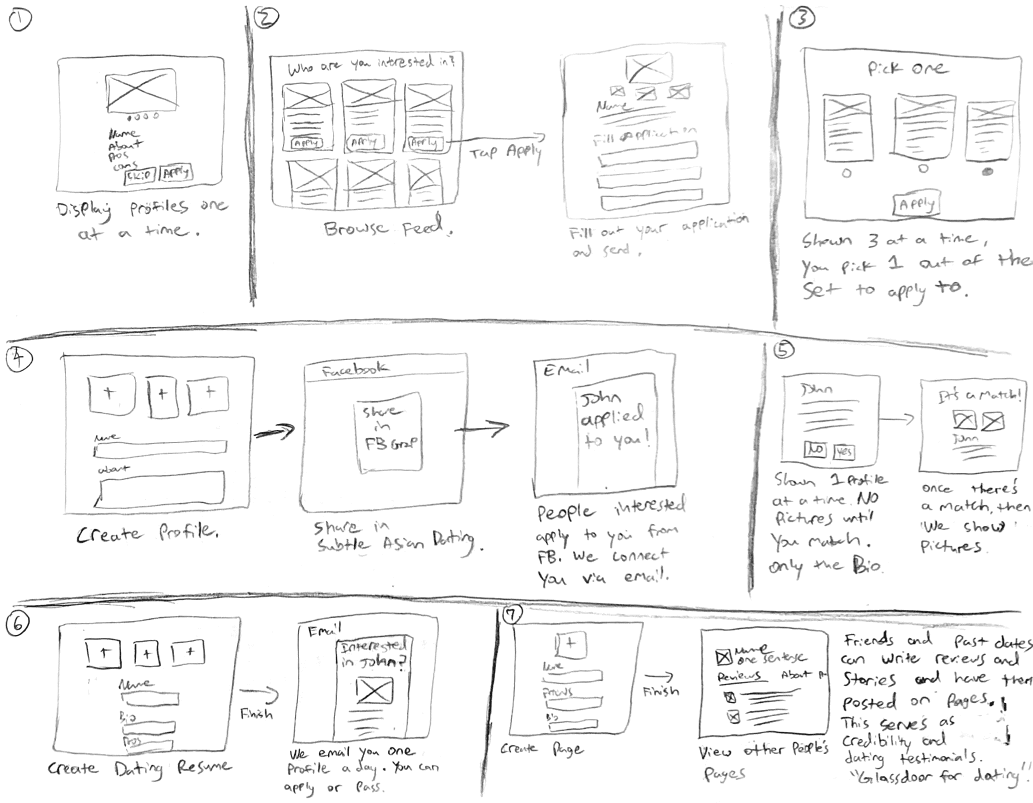 1
Name
About
Pros
Cons
Skip
Apply
Display Profiles one
at a time.
2
Who are you interested in?
Apply
Apply
Apply
Browse Feed.
Tap Apply
Name
Fill Application
Fill out your application
and send.
3
Pick one
Apply
Shown 3 at a time,
you pick 1 out of the
set to apply to.
4
+
+
+
Name
about
Create Profile.
Facebook
Share
in
FB Group
Share in
Subtle Asian Dating.
Email
John
applied
to you!
People interested
apply to you from
FB. We connect
you via email.
5
John
NO
yes
Shown 1 Profile
at a time. No
Pictures until
you match.
only the Bio.
It's a Match!
John
once there's
a match, then
we show
Pictures.
6
+
+
+
Name
Bio
Pros
Create Dating Resume
Finish
Email
Interested
in John?
We email you one
Profile a day. You can
apply or pass.
7
+
Name
Bio
Create Page
Finish
Name
one sentence
Reviews About
View other People's
Pages
Friends and past dates
can write reviews and
Stories and have them
posted on Pages.
This serves as
credibility and
dating testimonials.
"Glassdoor for dating".